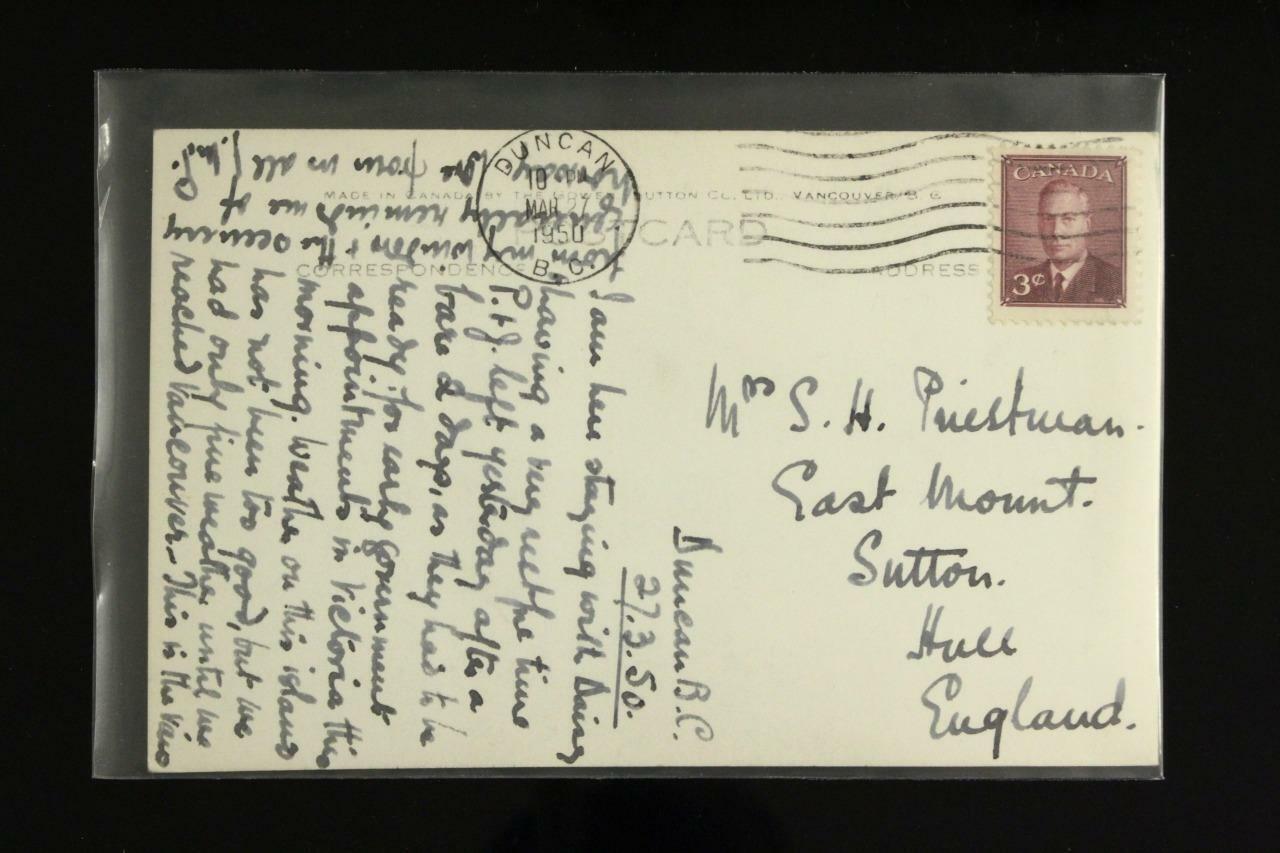 MADE IN CANADA BY THE GOWEN SUTTON CO. LTD., VANCOUVER, B. C.
POSTCARD
CORRESPONDENCE
ADDRESS
DUNCAN
10
MAR 27
1950
B.C.
CANADA
3¢
Mrs S. H. Priestman.
East Mount.
Sutton.
Hull
England.
Duncan B.C.
27.3.50.
I am here staying with Daisy
having a very restful time
P. & J. left yesterday after a
bare 2 days, as they had to be
ready for early Government
appointments in Victoria this
morning. Weather on this island
has not been too good, but we
had only fine weather until we
reached Vancouver – This is the view
from my window & the scenery
really reminds me of
Love from us all